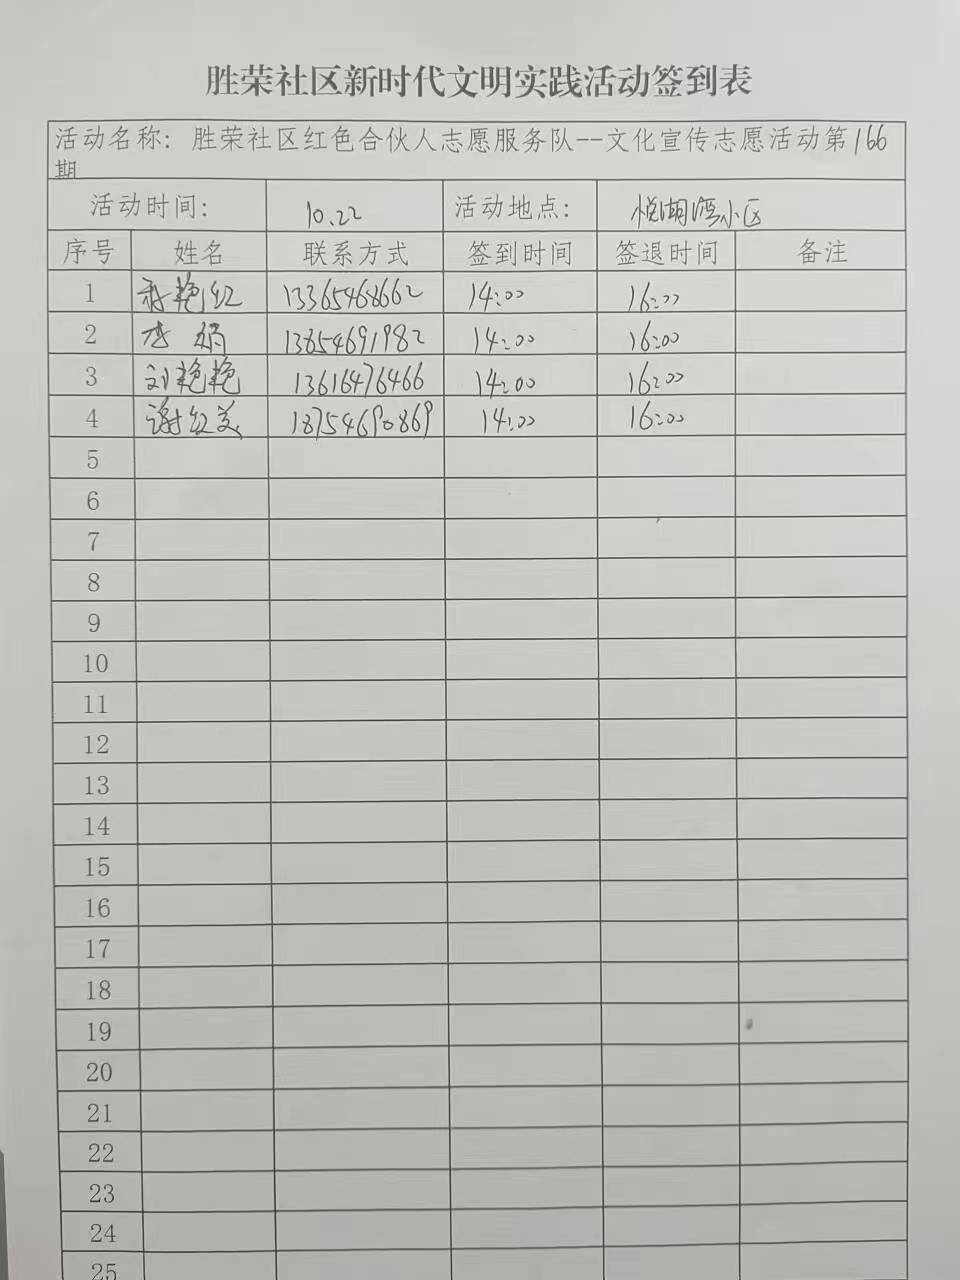 胜荣社区新时代文明实践活动签到表
活动名称：胜荣社区红色合伙人志愿服务队--文化宣传志愿活动第166
期
活动时间： 10.22 活动地点： 悦湖湾小区
序号 姓名 联系方式 签到时间 签退时间 备注
1 艳红 13365468662 14:00 16:00
2 李娟 13854691982 14:00 16:00
3 刘艳艳 13616476466 14:00 16:00
4 谢红美 18754690869 14:00 16:00
5
6
7
8
9
10
11
12
13
14
15
16
17
18
19
20
21
22
23
24
25